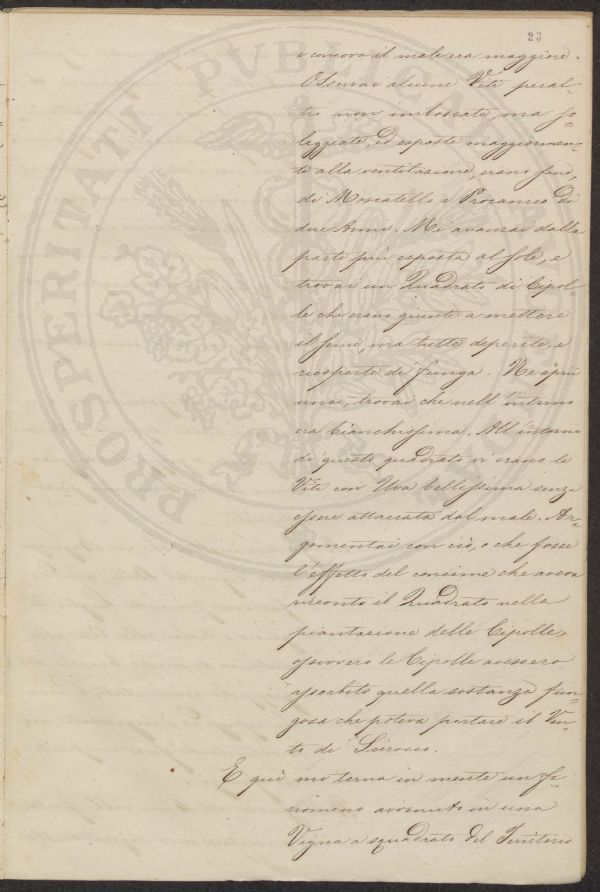 23
e concavo il male era maggiore.
Osservai alcune Viti peral=
tro non imboscate, ma so=
leggiate, ed esposte maggiormen=
te alla ventilazione, erano sane,
di Moscatello e Procanico di
due Anni. Mi avanzai dalla
parte più esposta al sole, e
trovai un Quadrato di Cipol=
le che erano giunte a mettere
il seme, ma tutte deperite, e
ricoperte di funga. Ne aprii
una, trovai che nell'interno
era bianchissima. All'intorno
di questo quadrato vi erano le
Viti con Uva bellissima senza
essere attaccata dal male. Ar=
gomentai con ciò, o che fosse
l'effetto del concime che aveva
ricevuto il Quadrato nella
piantazione delle Cipolle,
ossivvero le Cipolle avessero
assorbito quella sostanza fun=
gosa che poteva portare il Ven=
to di Scirocco.
E qui mi torna in mente un fe=
nomeno avvenuto in una
Vigna a squadrato del Territorio
PROSPERITATI PUBLICAE